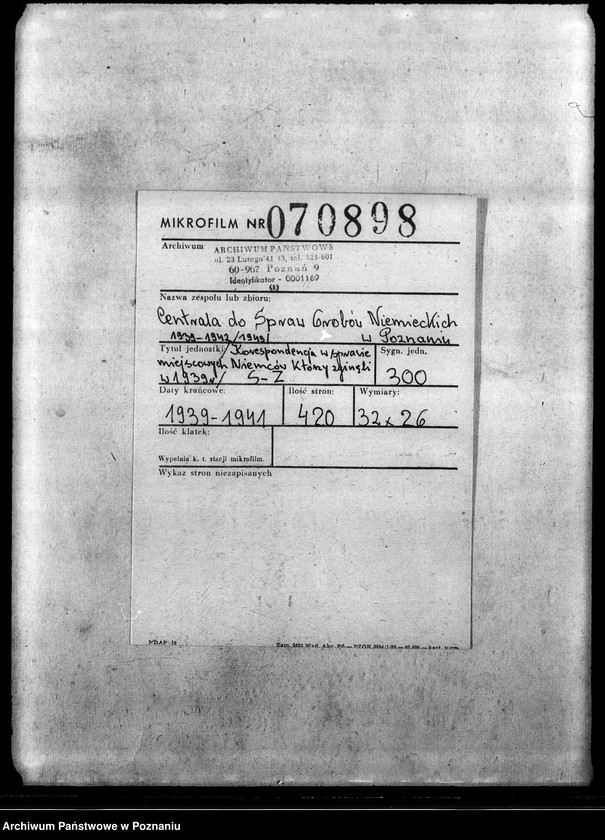 MIKROFILM NR 070898
Archiwum ARCHIWUM PAŃSTWOWE
ul. 23 Lutego 41/43, tel. 524-601
60-967 Poznań 9
Identyfikator - 0001169
Nazwa zespołu lub zbioru:
Centrala do Spraw Grobów Niemieckich
1939-1942/1943/ w Poznaniu
Tytuł jednostki: /Korespondencja w sprawie
miejscowych Niemców którzy zginęli
w 1939r/ S-Z
Sygn. jedn.
300
Daty krańcowe:
1939-1941
Ilość stron:
420
Wymiary:
32x26
Ilość klatek:
Wypełnia k. t. stacji mikrofilm.
Wykaz stron niezapisanych
NDAP-18
Archiwum Państwowe w Poznaniu